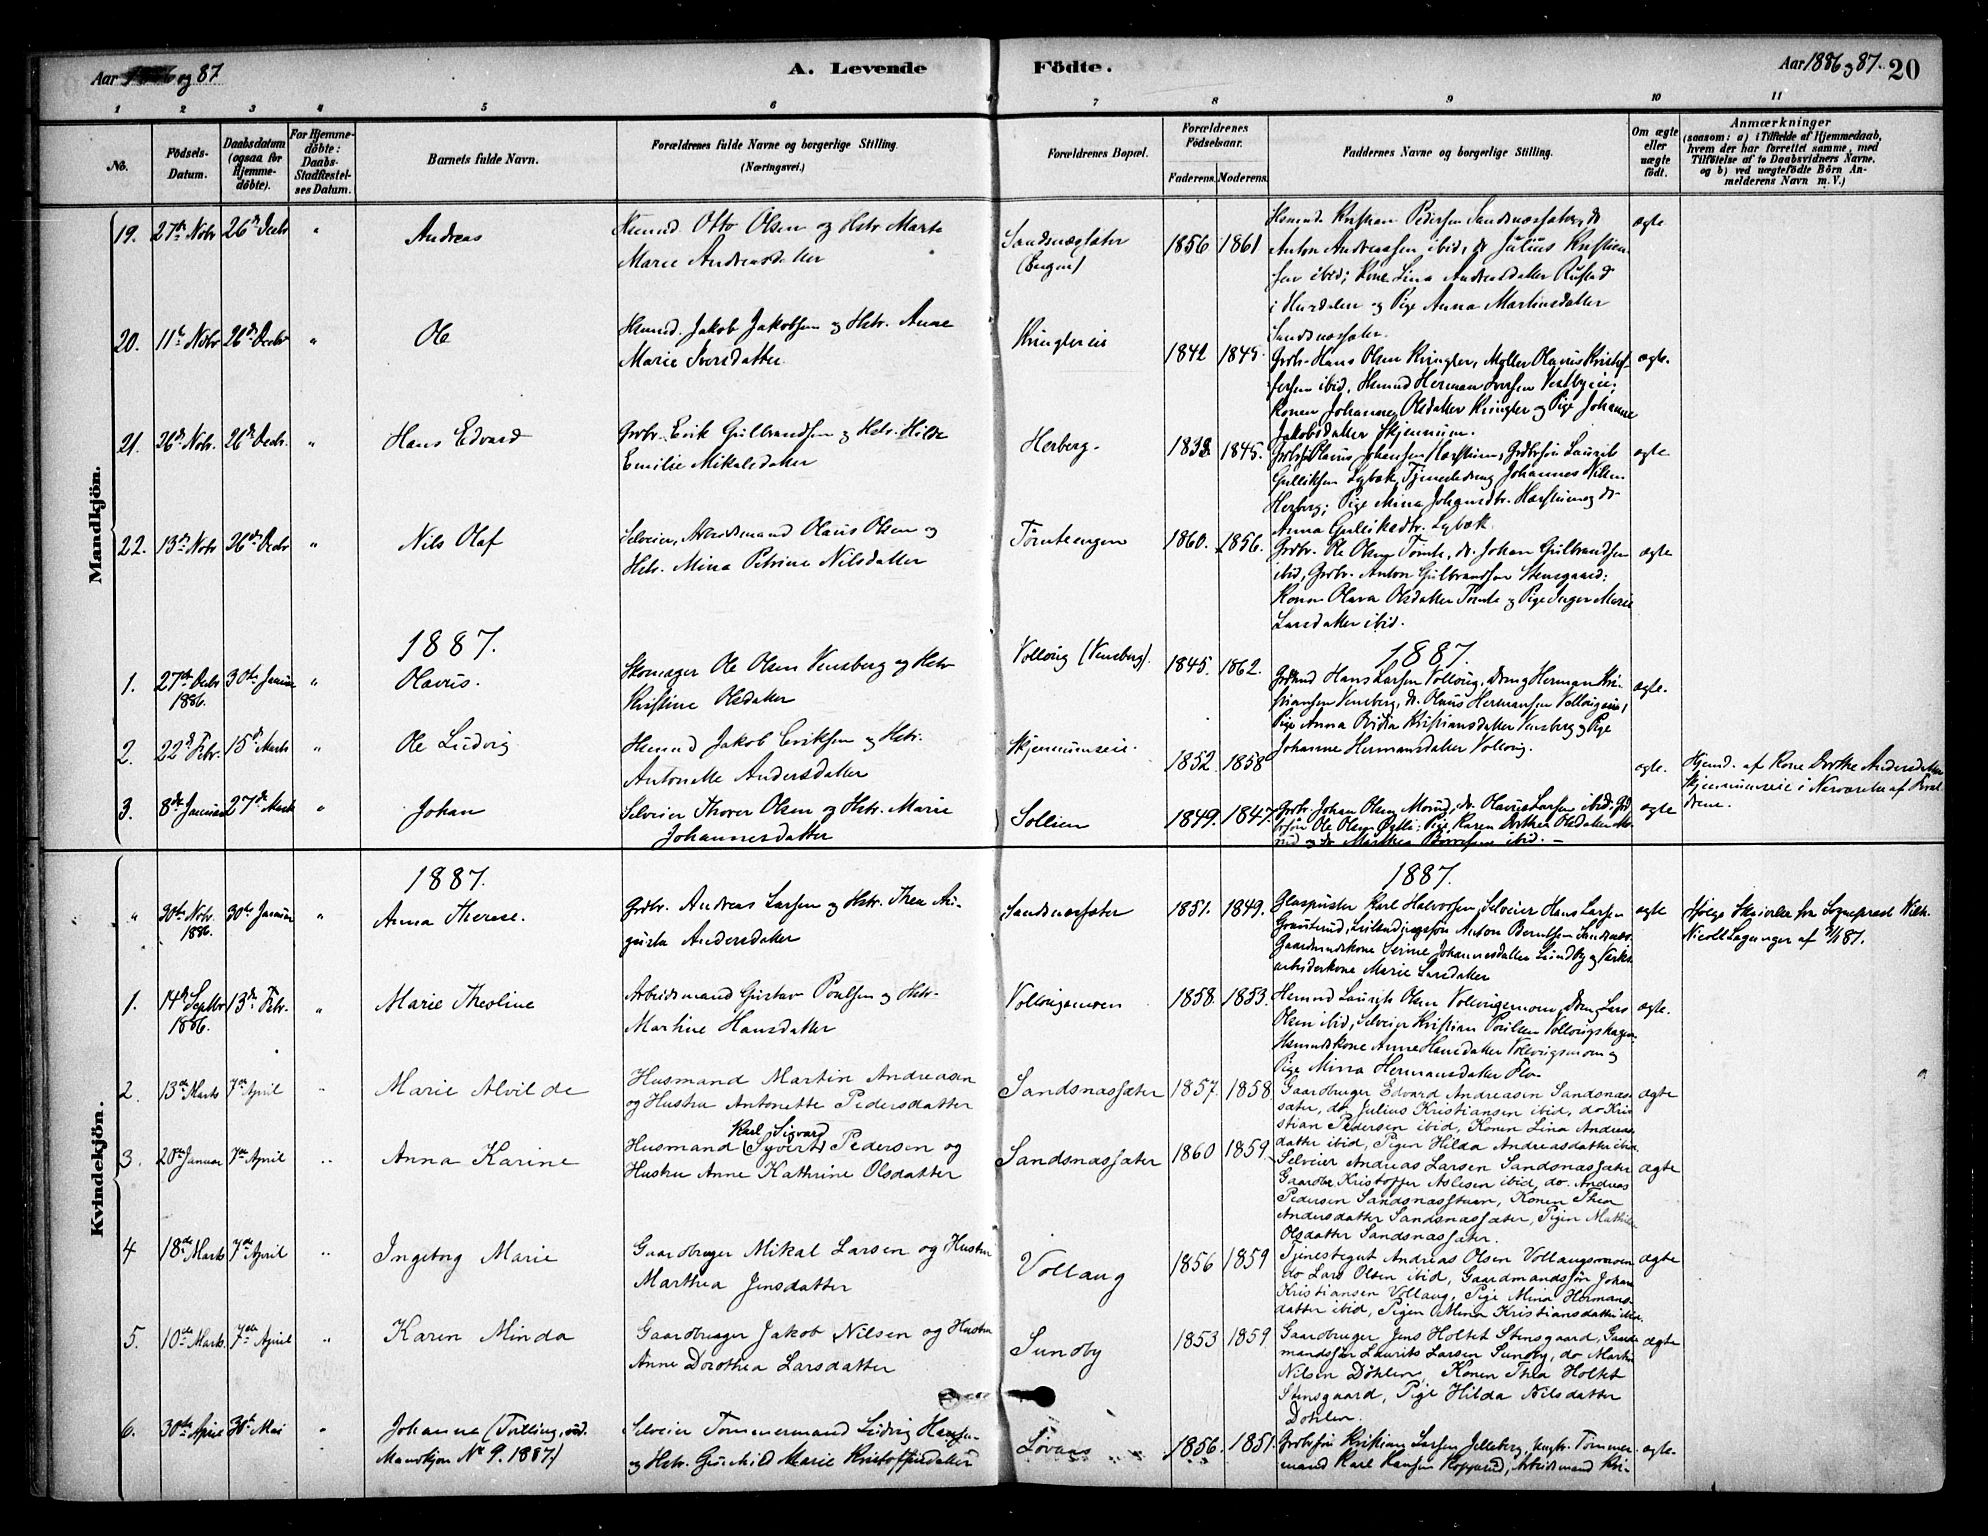 Aar 1886 og 87
A. Levende
Födte.
Aar 1886 og 87.
20
1 2 3 4 5 6 7 8 9 10 11
No.
Födsels-Datum.
Daabsdatum (ogsaa for Hjemme-döbte).
For Hjemme-döbte: Daabs-Stadfæstel-ses Datum.
Barnets fulde Navn.
Forældrenes fulde Navne og borgerlige Stilling.
(Næringsvei.)
Forældrenes Bopæl.
Forældrenes Födselsaar.
Faderens. Moderens.
Faddernes Navne og borgerlige Stilling.
Om ægte eller uægte födt.
Anmærkninger
(saasom: a) i Tilfælde af Hjemmedaab,
hvem der har forrettet samme, med
Tilföielse af to Daabsvidners Navne.
og b) ved uægtefödte Börn An-
melderens Navn m. V.)
Mandkjön.
19. 27de Nobr 26de Decbr " Andreas
Husmd Otto Olsen og Hstr. Marte
Marie Andreasdatter
Sandsnæssæter
(Engen)
1856 1861
Husmd. Kristian Pedersen Sandsnæssæter, do
Anton Andreassen ibid, do Julius Kristian-
sen ibid; Kone Lina Andreasdatter Rustad
i Hurdalen og Pige Anna Martinsdatter
Sandsnæssæter.
ægte
20. 11te Nobr 26de Decbr " Ole
Husmd. Jakob Jakobsen og Hstr. Anne
Marie Iversdatter
Kringlereie
1842 1845.
Grdbr. Hans Olsen Kringler, Møller Olavus Kristof-
fersen ibid, Husmd Herman Iversen Vestbyeie;
Konen Johanne Olsdatter Kringler og Pige Johanne
Jakobsdatter Skjennum.
ægte.
21. 26de Nobr. 26de Decbr. " Hans Edvard
Grdbr. Erik Gulbrandsen og Hstr. Hilde
Emilie Mikalsdatter
Herberg.
1838 1845.
Johansen Hærstuen, Grdbrsøn Laurits
Gulliksen Lybæk, Tjenestedreng Johannes Nilsen
Herberg; Pige Mina Johansdtr. Hærstuen og do
Anna Gulliksdtr. Lybæk.
ægte
22. 13de Nobr 26de Decbr " Nils Olaf
Selveier, Arbeidsmand Olaus Olsen og
Hstr. Mina Petrine Nilsdatter
Tømteengen
1860. 1856.
Grdbr. Ole Olsen Tømte, do. Johan Gulbrandsen
ibid, Grdbr. Anton Gulbrandsen Stensgaard;
Konen Olava Olsdatter Tømte og Pige Inger Marie
Larsdatter ibid.
ægte
1887. 1887.
1. 27de Decbr 1886. 30te Januar " Olavus.
Skomager Ole Olsen Vensberg og Hstr
Kristine Olsdatter
Vollaug (Vensberg).
1845. 1862.
Hans Larsen Vollaug, Dreng Herman Kri-
stiansen Vensberg, do. Olaus Hermansen Vollaugeie;
Pige Anna Kristiansdatter Vensberg og Pige
Johanne Hermansdatter Vollaug.
ægte.
2. 22de Febr. 15de Marts " Ole Ludvig
Husmd Jakob Eriksen og Hstr.
Antonette Andersdatter
Skjennumseie.
1852. 1858
ægte.
Hjemd. af Kone Dorthe Andersdatter
Skjennumseie i Nærværelse af Foræl-
drene.
3. 8de Januar 27de Marts " Johan
Selveier Thorer Olsen og Hstr. Marie
Johannesdatter
Sollien
1849. 1847.
Grdbr. Johan Olsen Morud, do. Olavus Larsen ibid; Grd-
brsøn Ole Olsen; Pige Karen Dorthea Olsdatter Mo-
rud og do Marthea ibid.
ægte
Kvindekjön.
1887. 1887.
" 30te Nobr. 1886. 30te Januar " Anna Therese.
Grdbr. Andreas Larsen og Hstr. Thea Au-
gusta Andersdatter
Sandsnæssæter
1851. 1849.
Glaspuster Karl Halvorsen, Selveier Hans Larsen
Anton Berntsen Sandsnæs.
Gaardmandskone Serine Johannesdatter Lundby og Værks-
arbeiderkone Marie Larsdatter
ægte
Ifølge Skrivelse fra Sogneprest Wilh.
Nicoll Laguage af 87.
1. 14de Septbr 1886. 13de Febr. " Marie Theoline
Arbeidsmand Gustav Poulsen og Hstr.
Martine Hansdatter
Vollaugsmoen
1858. 1853.
Husmd Laurits Olsen Vollaugsmoen, Dreng Lars
Olsen ibid, Selveier Kristian Poulsen Vollaugshagen
Husmdskone Anne Hansdatter Vollaugsmoen og
Pige Mina Hermansdatter
ægte.
2. 13de Marts 7de April " Marie Alvilde
Husmand Martin Andreasen
og Hustru Antonette Pedersdatter
Sandsnæssæter
1857. 1858.
Gaardbruger Edvard Andreasen Sandsnæs-
sæter, do Julius Kristiansen ibid, do Kri-
stian Pedersen ibid, Konen Lina Andreas-
datter ibid, Pigen Hilda Andreasdatter ibid
ægte
3. 20de Januar 7de April " Anna Karine
Karl Sigvard
Husmand (Syvert) Pedersen og
Hustru Anne Kathrine Olsdatter
Sandsnæssæter
1860 1859.
Selveier Andreas Larsen Sandsnæssæter
Gaardbr Kristoffer Aslesen ibid, do. Andreas
Pedersen Sandsnæsstuen, Konen Thea
Andersdatter Sandsnæssæter, Pigen Mathilde
Olsdatter Sandsnæssæter.
ægte
4 18de Marts 7de April " Ingeborg Marie
Gaardbruger Mikal Larsen og Hustru
Marthea Jensdatter
Vollaug
1856 1859
Tjenestegut Andreas Olsen Vollaugsmoen
do Lars Olsen ibid, Gaardmandssøn Johan
Kristiansen Vollaug, Pige Mina Hermans-
datter ibid, Pigen Mina Kristiansdatter ibid.
ægte
5. 10de Marts. 7de April " Karen Minda
Gaardbruger Jakob Nilsen og Hustru
Anne Dorothea Larsdatter
Sundby
1853 1859
Gaardbruger Jens Holtet Stensgaard, Gaard-
mandssøn Laurits Larsen Sundby, do Martin
Nilsen Døhlen, Konen Thea Holtet
Stensgaard, Pige Hilda Nilsdatter
Døhlen.
ægte
6. 30te April 30te Mai " Johanna (Tvilling, vid.
Mandkjøn No 9. 1887.)
Selveier Tømmermand Ludvig Hansen
og Hstr. Gunhild Marie Kristoffersdatter
Løvaas
1856. 1851.
Grdbrsøn Kristian Larsen Jelleberg, Ungk. Tømmer-
mand Karl Hansen, Arbeidsmand Kri-
ægte.